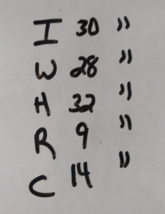 I 30 "
W 28 "
H 32 "
R 9 "
C 14 "